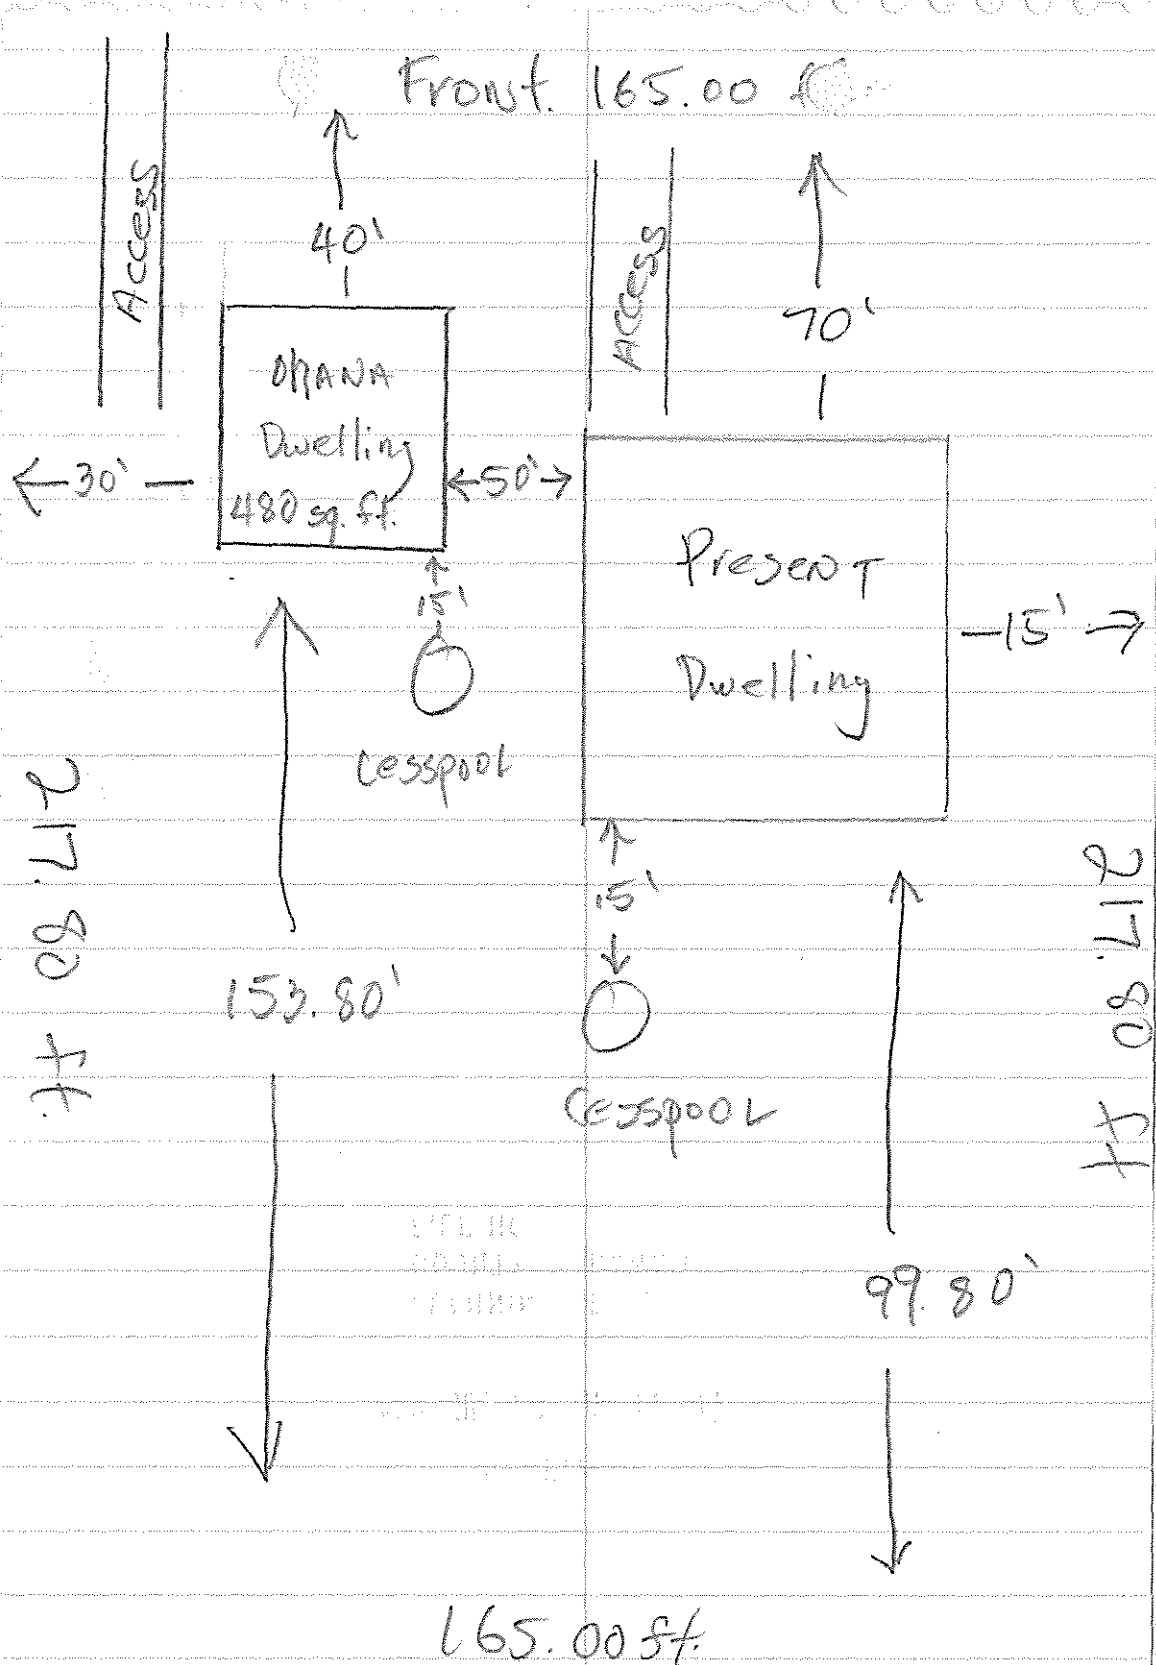 Front. 165.00 f
Access
40'
Access
70'
OHANA
Dwelling
480 sq. ft.
30'
50'
Present
Dwelling
15'
15'
Cesspool
217.80 ft.
217.80 ft
15'
153.80'
Cesspool
99.80'
165.00 ft.